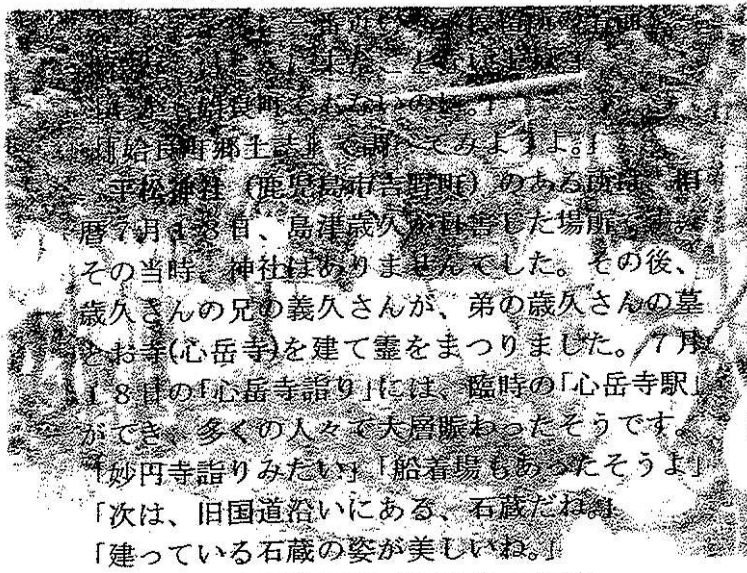 「姶良町郷土誌で調べてみますよ。」
平松神社(鹿児島市吉野町)のある所は、旧
暦7月18日、島津歳久が自害した場所です。
その当時、神社はありませんでした。その後、
歳久さんの兄の義久さんが、弟の歳久さんの墓
とお寺(心岳寺)を建て霊をまつりました。7月
18日の「心岳寺詣り」には、臨時の「心岳寺駅」
ができ、多くの人々で大層賑わったそうです。
「妙円寺詣りみたい」「船着場もあったそうよ」
「次は、旧国道沿いにある、石蔵だね。」
「建っている石蔵の姿が美しいね。」